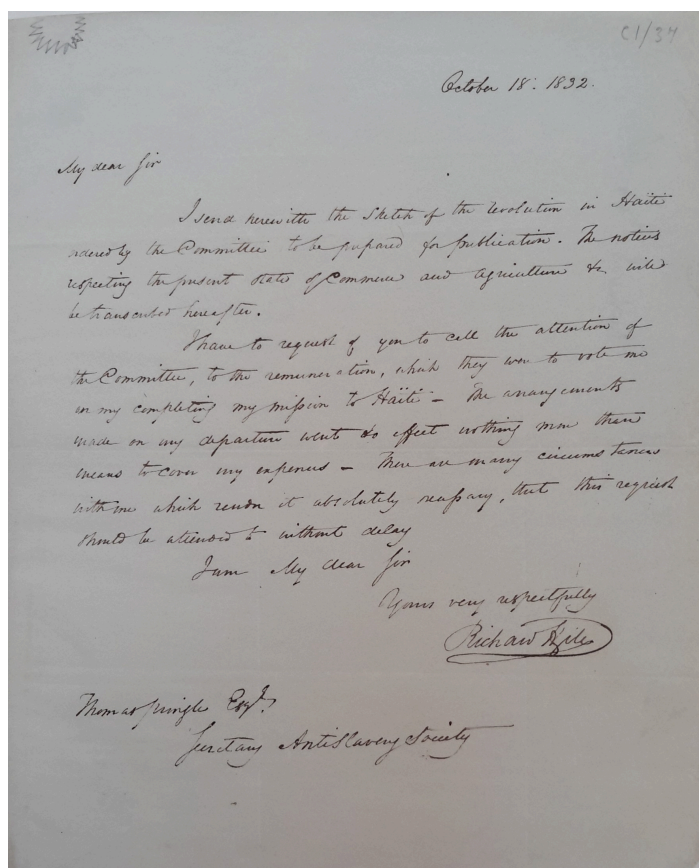 C1/34
October 18: 1832.
My dear Sir
I send herewith the Sketch of the revolution in Haïti
ordered by the Committee to be prepared for publication. The notices
respecting the present state of Commerce and Agriculture &c. will
be transcribed hereafter.
I have to request of you to call the attention of
the Committee, to the remuneration, which they were to vote me
on my completing my mission to Haïti – The arrangements
made on my departure went to effect nothing more than
means to cover my expenses – There are many circumstances
with me which render it absolutely necessary, that this request
should be attended to without delay
I am My dear Sir
Yours very respectfully
Richard Hill
Thomas Pringle Esqr.
Secretary AntiSlavery Society